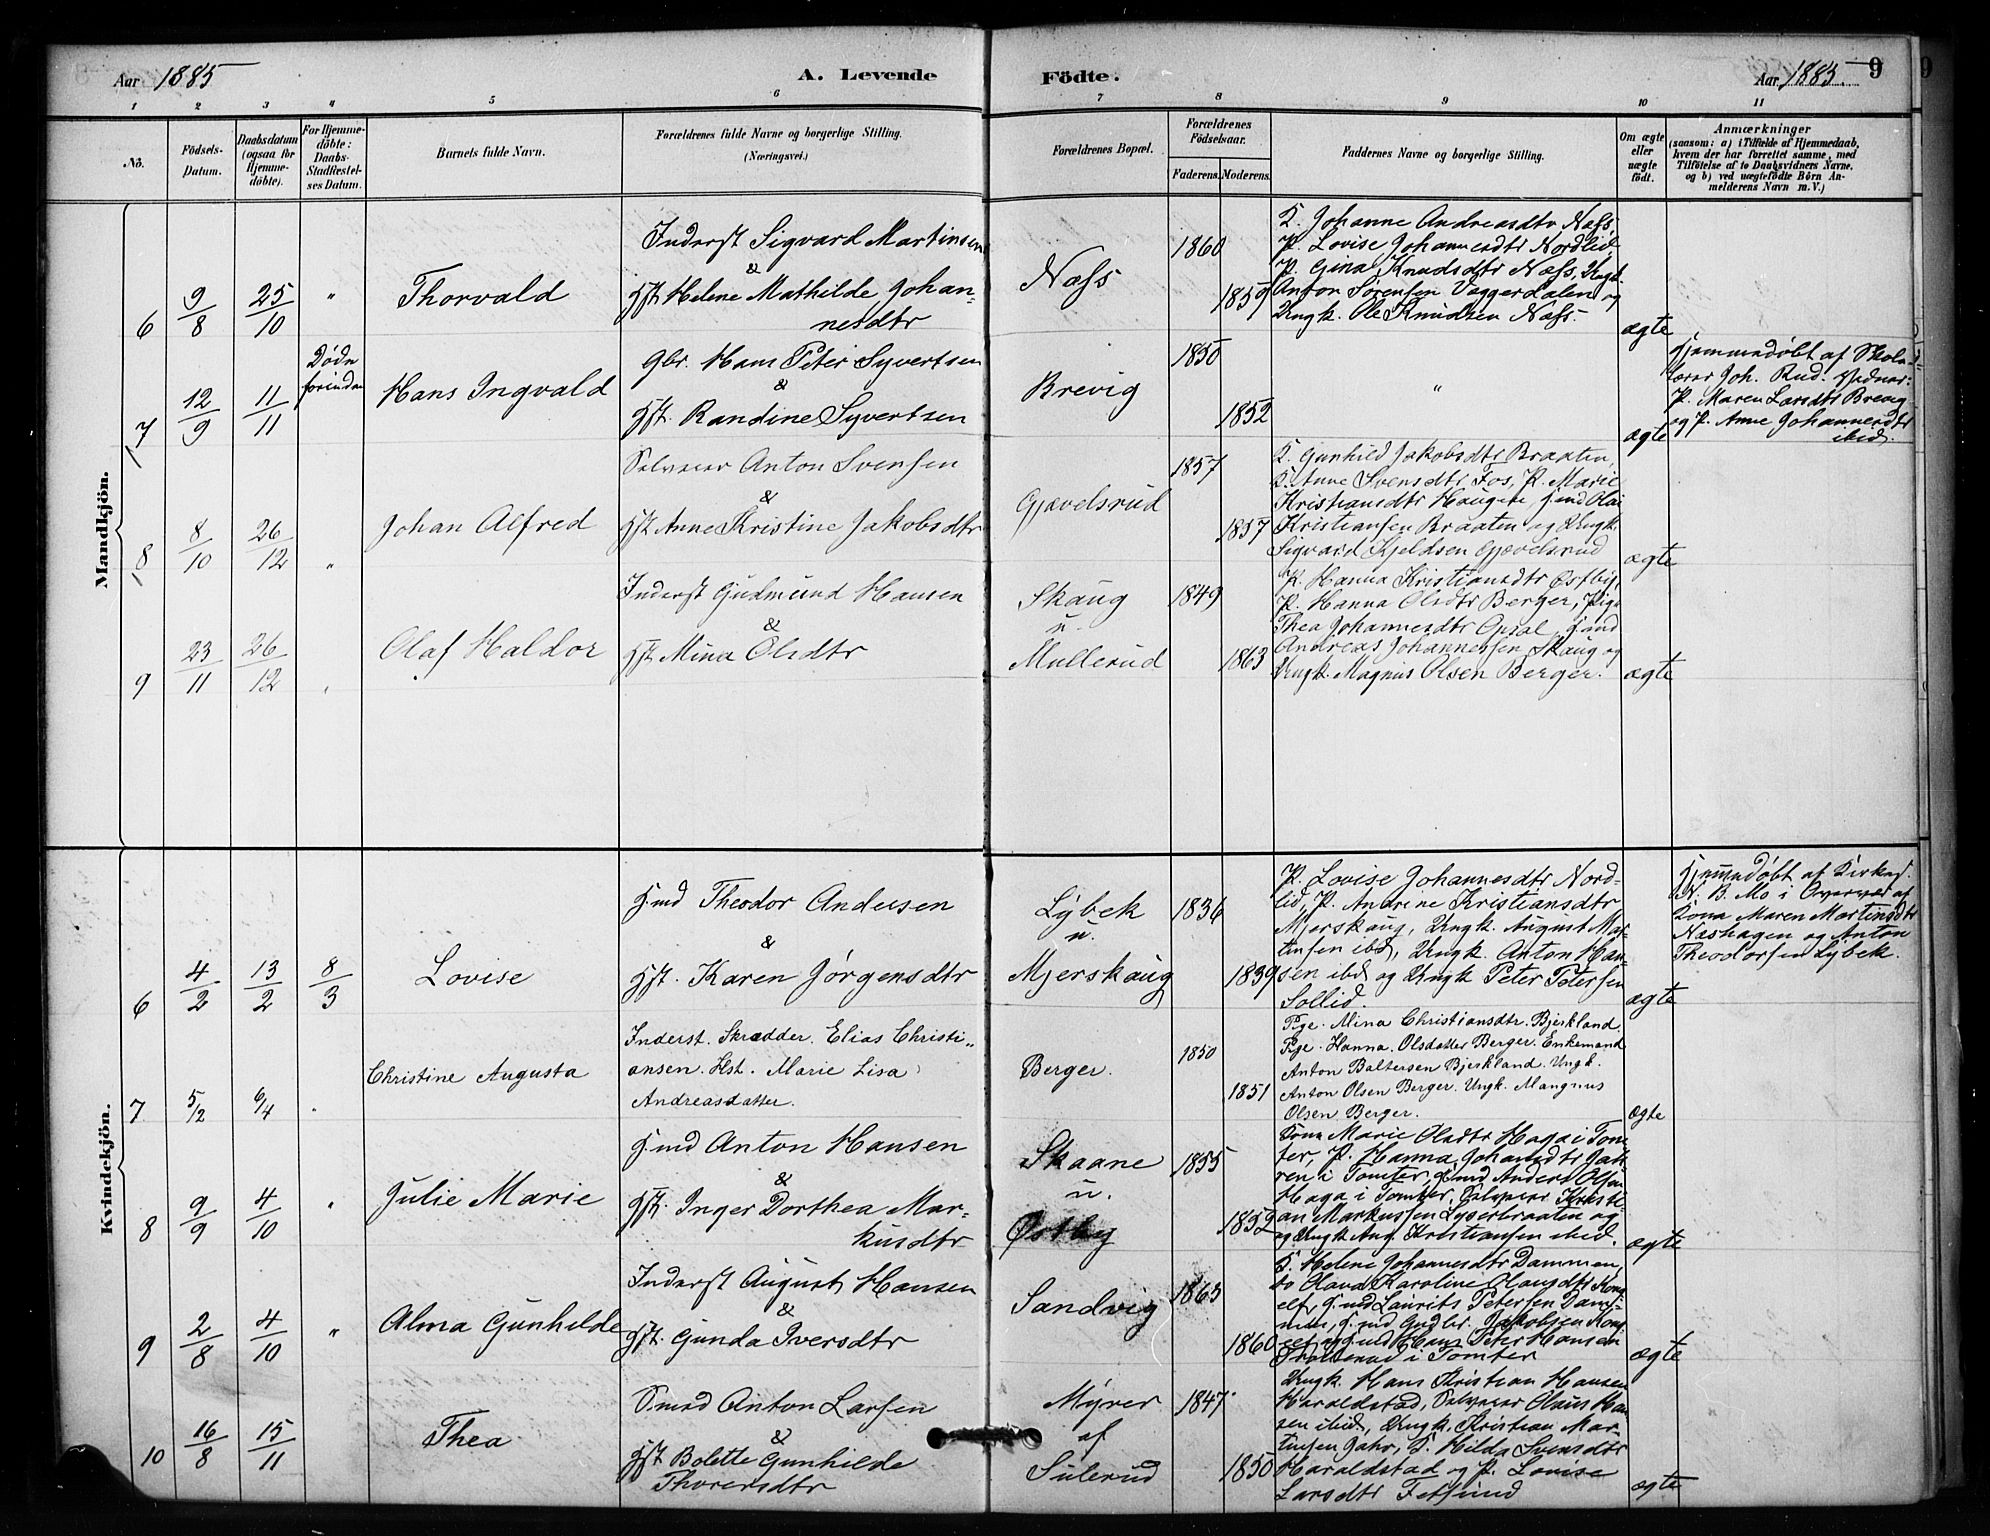 Aar 1885
A. Levende
Födte.
Aar 1885
9
1 2 3 4 5 6 7 8 9 10 11
No.
Födsels-
Datum.
Daabsdatum
(ogsaa for
Hjemme-
döbte).
For Hjemme-
döbte:
Daabs-
Stadfæstel-
ses Datum.
Barnets fulde Navn.
Forældrenes fulde Navne og borgerlige Stilling.
(Næringsvei.)
Forældrenes Bopæl.
Forældrenes
Födselsaar.
Faderens. Moderens.
Faddernes Navne og borgerlige Stilling.
Om ægte
eller
uægte
födt.
Anmærkninger
(saasom: a) i Tilfælde af Hjemmedaab,
hvem der har forrettet samme, med
Tilföielse af to Daabsvidners Navne,
og b) ved uægtefödte Börn An-
melderens Navn m. V.)
Mandkjön.
6
9/8
25/10
"
Thorvald
Inderst Sigvard Martinsen
&
Hst. Helene Mathilde Johan-
nesdtr
Næss
1860
1859
K. Johanne Andreasdtr Næss,
P. Lovise Johannesdtr Nordlid,
P. Gina Knudsdtr Næss, Ungk.
Anton Sörensen Vaggerdalen og
Ungk. Ole Knudsen Næss.
ægte
7
12/9
11/11
Döde
forinden
Hans Ingvald
Gbr. Hans Peter Syvertsen
&
Hst. Randine Syvertsen
Brevig
1850
1852
"
ægte
Hjemmedöbt af Skole-
lærer Joh. Rud. Vidner:
P. Maren Larsdtr Brevig
og P. Anne Johannesdtr
ibid.
8
8/10
26/12
"
Johan Alfred
Selveier Anton Svensen
&
Hst Anne Kristine Jakobsdtr
Gjævelsrud
1857
1857
K. Gunhild Jakobsdtr Braaten,
K. Anne Svensdtr Fos, P. Marie
Kristiansdtr Haugete, Gmd
Kristiansen Braaten og Ungk.
Sigvard Kjeldsen Gjævelsrud
ægte
9
23/11
26/12
"
Olaf Haldor
Inderst Gudmund Hansen
&
Hst Mina Olsdtr
Skaug
u.
Mullerud
1849
1863
P. Hanna Kristiansdtr Østby,
P. Hanna Olsdtr Berger, Pige
Thea Johannesdtr Opsal, Gmd
Andreas Johannessen Skaug og
Ungk. Magnus Olsen Berger.
ægte
Kvindekjön.
6
4/2
13/2
8/3
Lovise
Gmd Theodor Andersen
&
Hst. Karen Jørgensdtr
Lybek
u.
Mjerskaug
1836
1839
P. Lovise Johannesdtr Nord-
lid, P. Andrine Kristiansdtr
Mjerskaug, Ungk. August Mar-
tinsen ibd, Ungk. Anton Han-
sen ibd og Ungk Peter Petersen
Sollid.
ægte
Hjemmedöbt af Kirkes.
N. B. Mo i Overvær af
Kona Maren Martinsdtr
Næshagen og Anton
Theodorsen Lybek.
7
5/2
6/4
"
Christine Augusta
Inderst. Skrædder. Elias Christi-
ansen. Hst. Marie Lisa
Andreasdatter.
Berger.
1850
1851
Pige. Mina Christiansdtr. Bjerkland.
Pige. Hanna. Olsdatter Berger. Enkemand
Anton Baltersen Bjerkland. Ungk.
Anton Olsen Berger. Ungk. Mangnus
Olsen Berger.
ægte
8
9/9
4/10
"
Julie Marie
Gmd Anton Hansen
&
Hst. Inger Dorthea Mar-
kusdtr
Skaane
u.
Østby
1855
1852
Kona Marie Olsdtr Haga i Tom-
ter, P. Hanna Johansdtr
i Tomter, Gmd Anders Olsen
Haga i Tomter, Selveier Kristi-
an Markussen Lyserbraaten og
og Ungk Aug. Kristiansen ibid.
ægte
9
2/8
4/10
"
Alma Gunhilde
Inderst August Hansen
&
Hst. Gunda Iversdtr
Sandvig
1863
1860
K. Helene Johannesdtr Dammen,
do Olava Karoline Hansdtr
Gmd Laurits Petersen Dam-
men, Gmd Gudbr. Jakobsen
og Gmd Hans Peter Hansen
i Tomter
ægte
10
16/8
15/11
Thea
Smed Anton Larsen
&
Hst Bolette Gunhilde
Thorersdtr
Myrer
af
Sulerud
1847
1850
Ungk. Hans Kristian Hansen
Haraldstad, Selveier Olaus Han-
sen ibid, Ungk. Kristian Mar-
tinsen K. Hilda Svensdtr
Haraldstad og P. Lovise
Larsdtr Fetsund
ægte